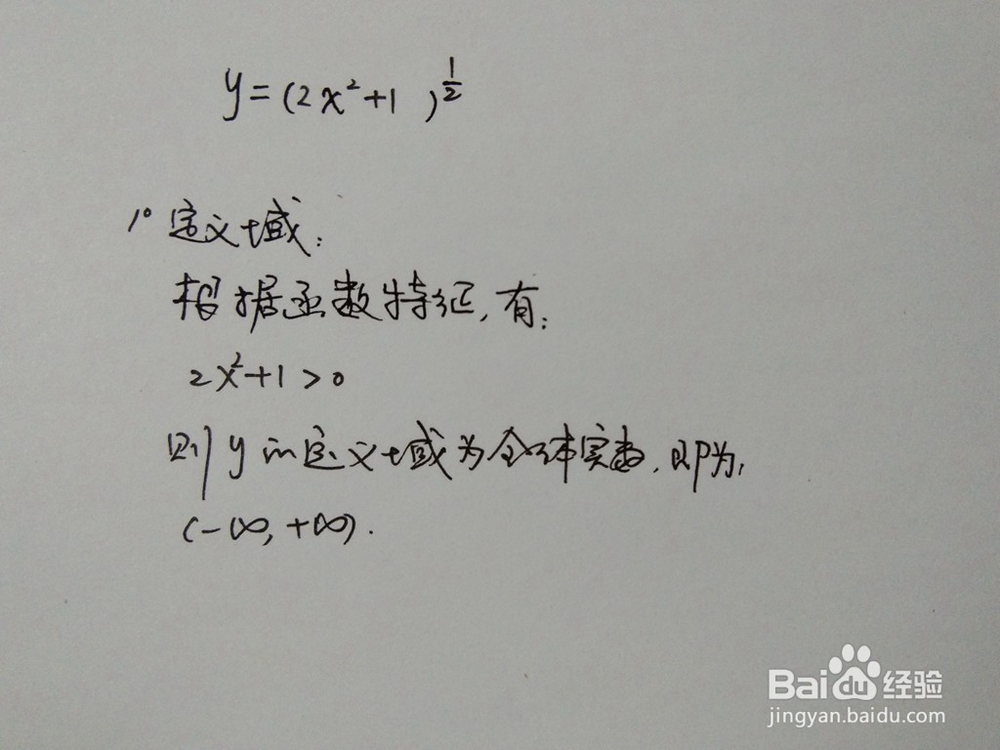 y=(2x²+1 )^{\frac{1}{2}}
1° 定义域:
根据函数特征,有:
2x²+1>0
则y的定义域为全体实数,即为,
(-∞,+∞).
Baidu经验
jingyan.baidu.com